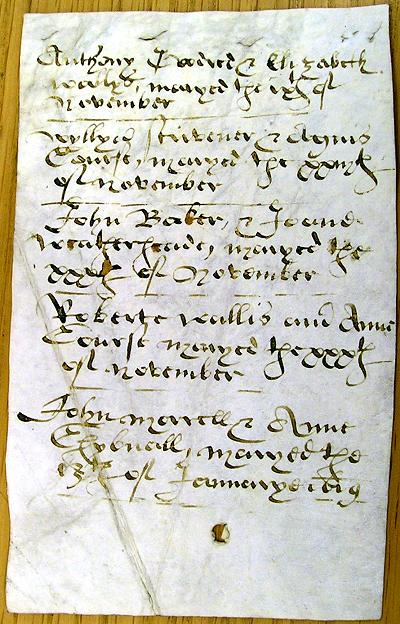 Anthony & Elizabeth
maryed the ixth of
November
Wyllyam & Agnis
Course, maryed the
of November
John Baker, & Joane
Weatherheade, maryed the
xxxth of November
Roberte Wallis and Anne
Course maryed the xxxth
of November
John Merrell & Anne
maryed the
13th of Januarye 1619